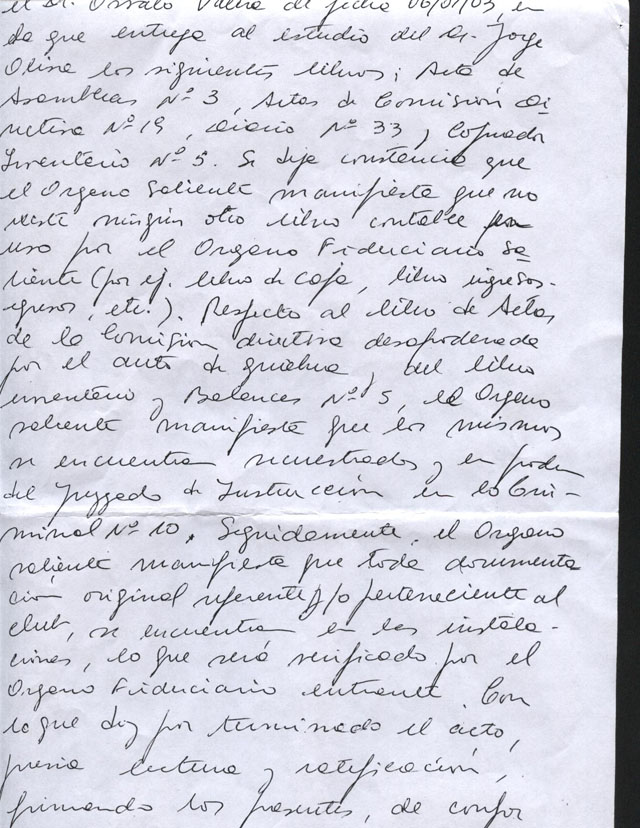 el Dr. Osvaldo Valera de fecha 06/01/03, en
la que entrega al estudio del Dr. Jorge
los siguientes libros; Acta de
Asambleas Nº 3, Actas de Comisión Di
rectiva Nº 19, Diario Nº 33 y Copiador
Inventario Nº 5. Se deja constancia que
el Organo Saliente manifiesta que no
existe ningún otro libro contable en
uso por el Organo Fiduciario Sa
liente (por ej. libro de caja, libro ingresos-
egresos, etc.). Respecto al libro de Actas
de la Comisión directiva desapoderada
por el auto de quiebra, del libro
inventario y Balances Nº 5, el Organo
saliente manifiesta que los mismos
se encuentran secuestrados y en poder
del Juzgado de Instrucción en lo Cri-
minal Nº 10. Seguidamente, el Organo
saliente manifiesta que toda documenta
ción original referente y/o perteneciente al
club, se encuentra en las instala-
ciones, lo que será verificado por el
Organo Fiduciario entrante. Con
lo que doy por terminado el acto,
previa lectura y ratificación,
firmando los presentes, de confor